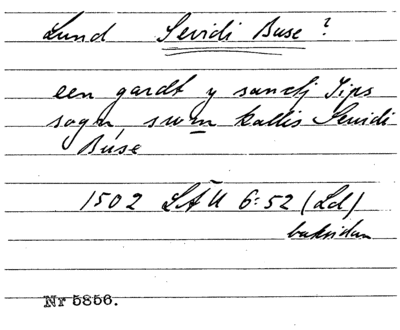 Lund Sevidi Buse?
een gardt y sanctj Jips
sogn, swm kallis Sevidi
Buse
1502 LÄU 6:52 (Ld)
baksidan
Nr 5856.